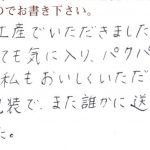 のでお書き下さい。
工産でいただきました
ても気に入り、パクパ
私もおいしくいただ
装で、また誰かに送
た。